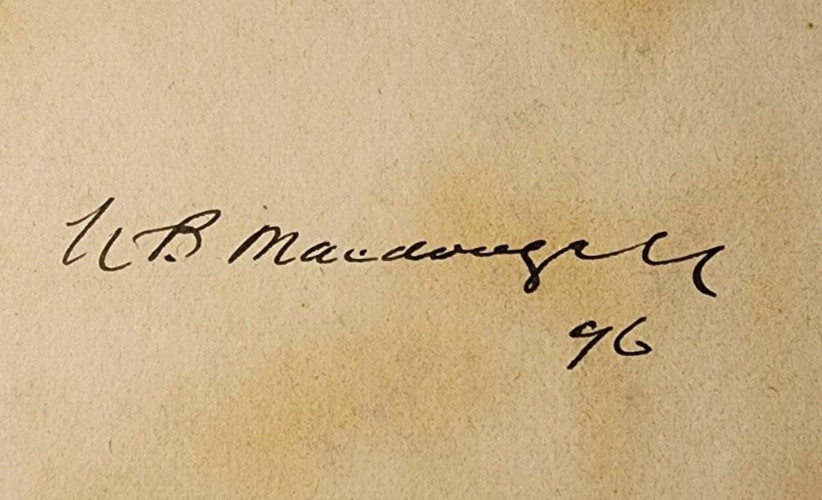 W B Macdougall
96